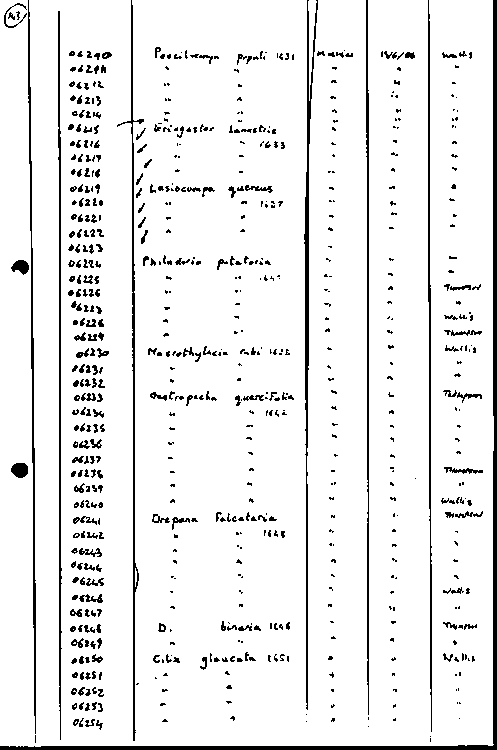 43
06290 Poecilocampa populi 1631 15/6/86 Wallis
06291 " " " " "
06212 " " " " "
06213 " " " " "
06214 " " " " "
06215 Eriogaster lanestris " " "
06216 " " 1633 " " "
06217 " " " " "
06218 " " " " "
06219 Lasiocampa quercus " " "
06220 " " 1637 " " "
06221 " " " " "
06222 " " " " "
06223 " " "
06224 Philudoria potatoria " " "
06225 " " 1640 " " "
06226 " " " " Thompson
06227 " " " " "
06228 " " " " Wallis
06229 " " " " Thompson
06230 Macrothylacia rubi 1638 " " Wallis
06231 " " " " "
06232 " " " " "
06233 Gastropacha quercifolia " " Thompson
06234 " " 1642 " " "
06235 " " " " "
06236 " " " " "
06237 " " " " "
06238 " " " " Thompson
06239 " " " " "
06240 " " " " Wallis
06241 Drepana falcataria " " Thompson
06242 " " 1648 " " "
06243 " " " " "
06244 " " " " "
06245 " " " " "
06246 " " " " Wallis
06247 " " " " "
06248 D. binaria 1646 " " Thompson
06249 " " " " "
06250 Cilix glaucata 1651 " " Wallis
06251 " " " " "
06252 " " " " "
06253 " " " " "
06254 " " " " "